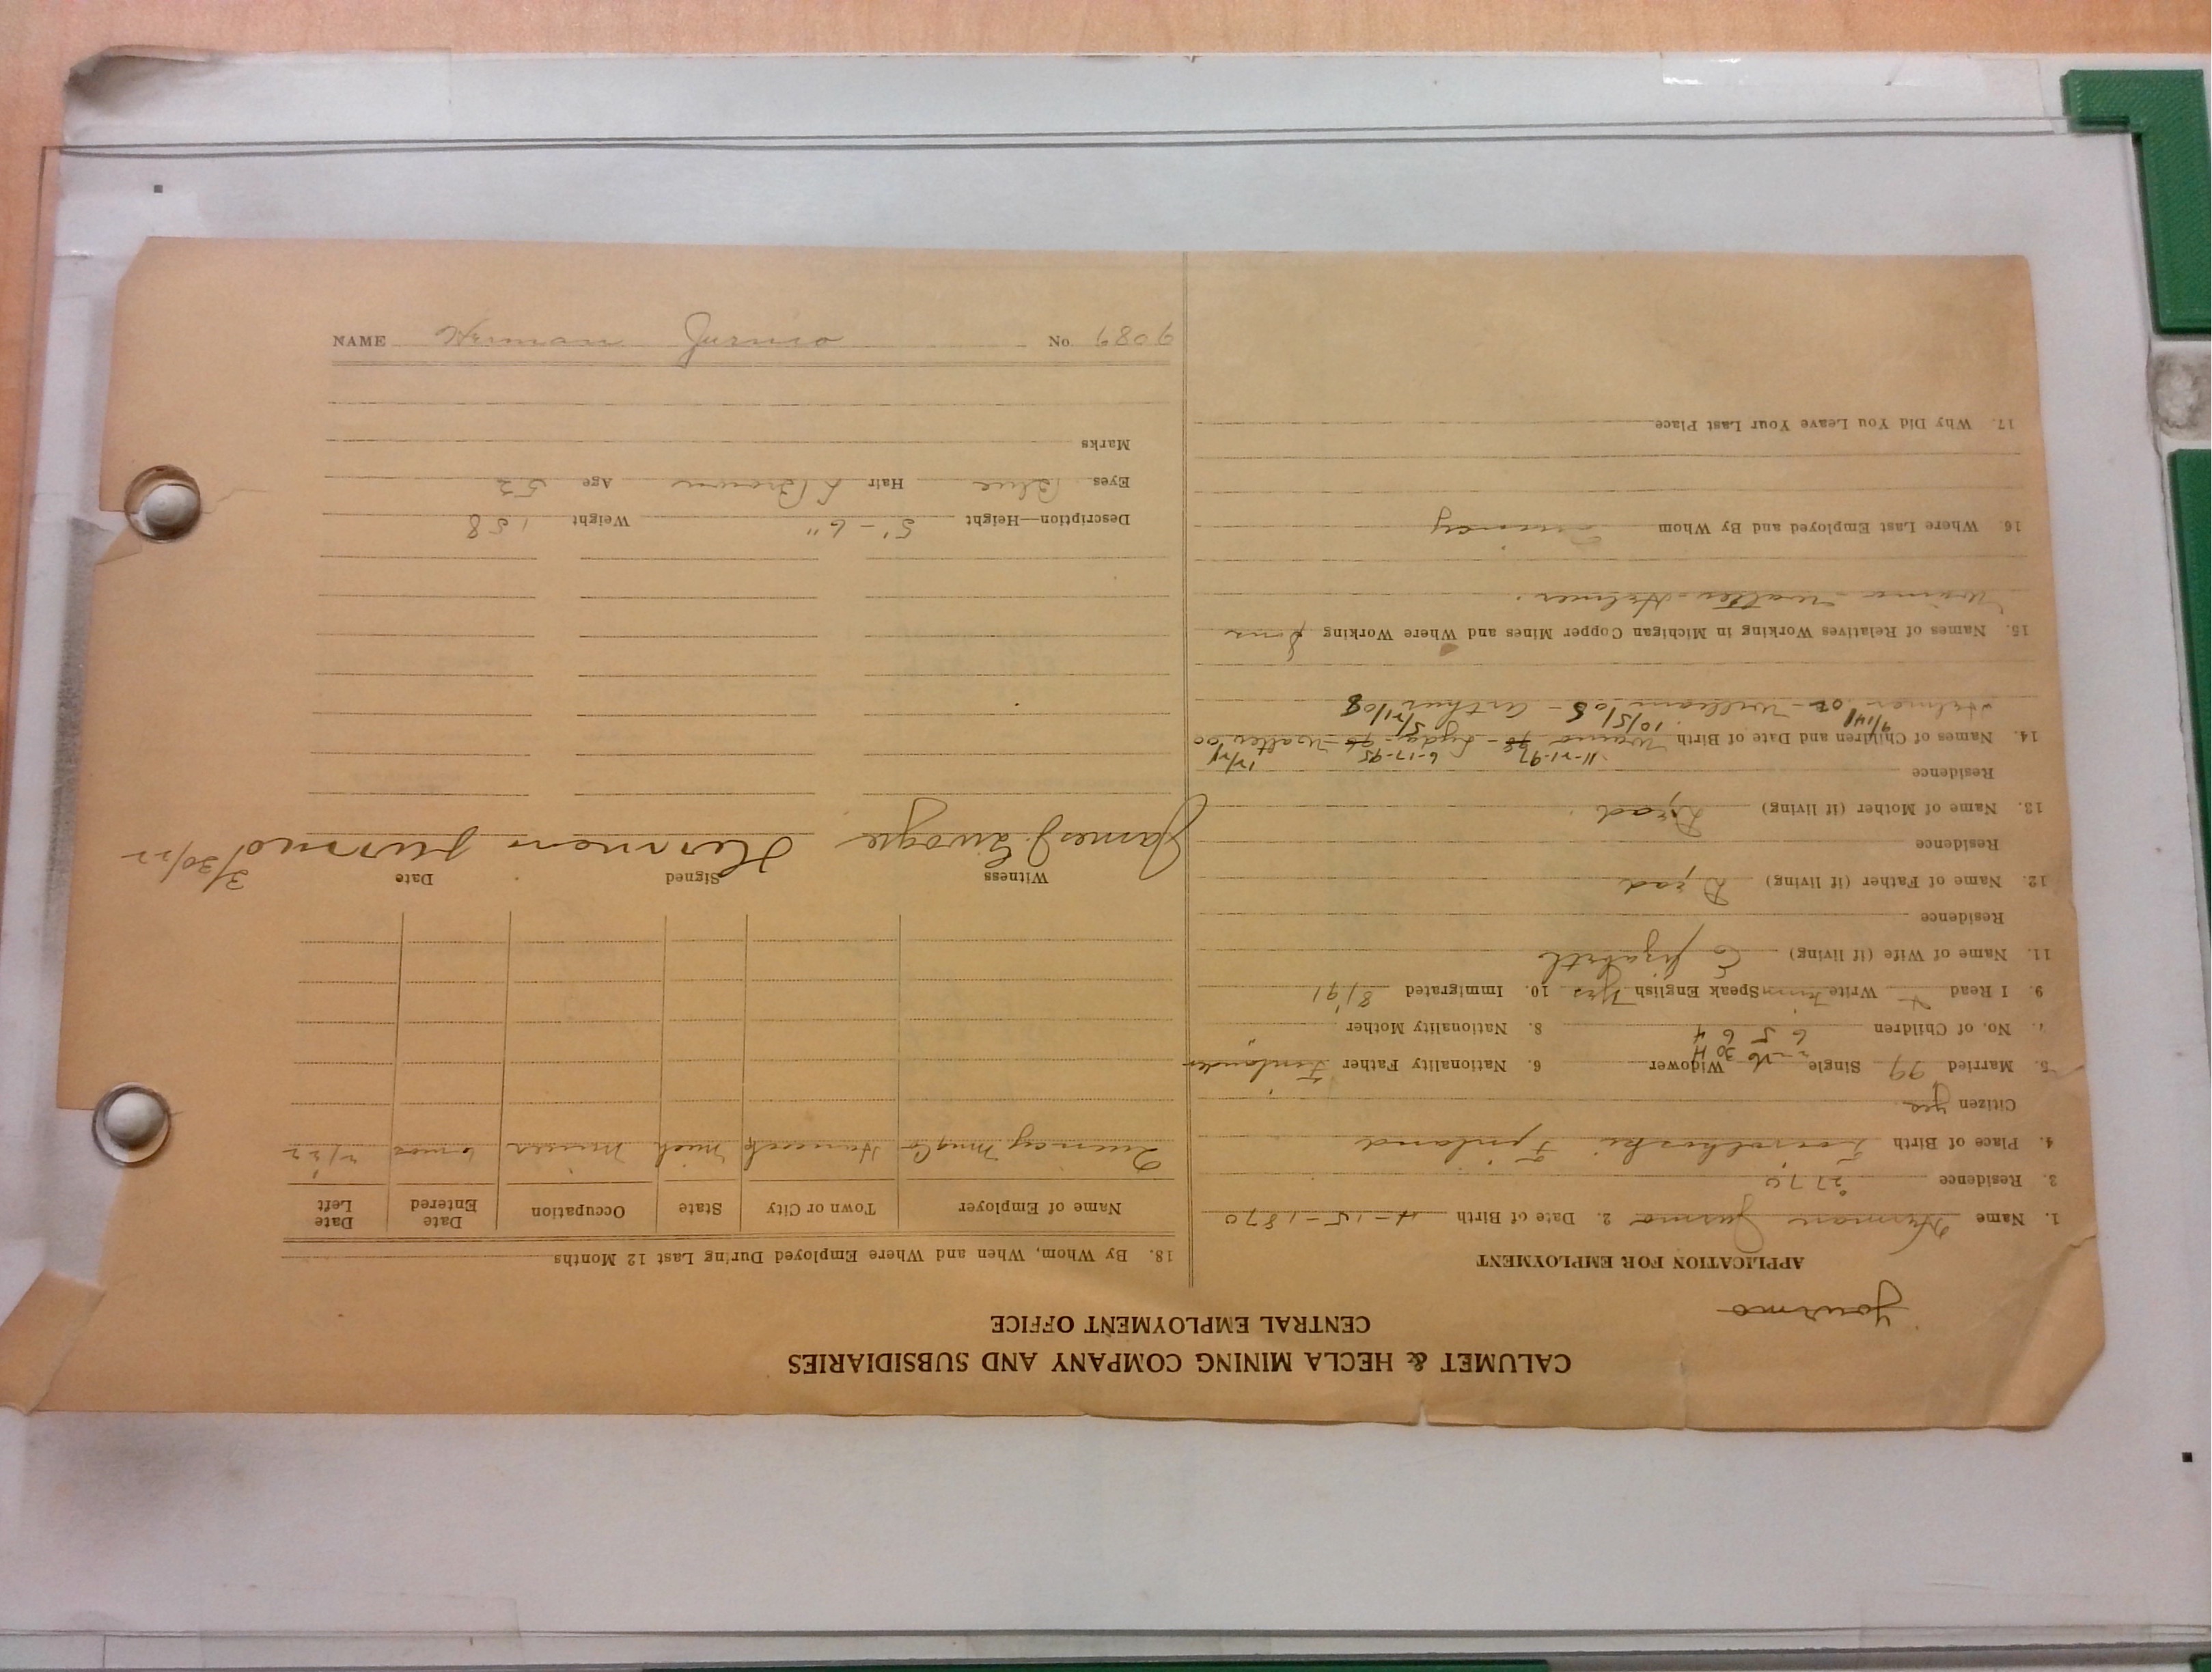 CALUMET & HECLA MINING COMPANY AND SUBSIDIARIES
CENTRAL EMPLOYMENT OFFICE
Jourmo
APPLICATION FOR EMPLOYMENT
1. Name Herman Jurmo 2. Date of Birth 4-15-1870
3. Residence
4. Place of Birth Finland
Citizen yes
5. Married 29 Single Widower 6. Nationality Father Finlander
30 H
7. No. of Children 6 5 6 4 8. Nationality Mother "
9. I Read Write Finn Speak English Yes 10. Immigrated 8/91
11. Name of Wife (if living) Elizabeth
Residence
12. Name of Father (if living) Dead
Residence
13. Name of Mother (if living) Dead
Residence
11-21-97 6-17-95 12/21
14. Names of Children and Date of Birth Waino 98 - Lyda - 96 - Walter 00
9/14/ 10/5/ 5/21/
Helmer 02 - William 05 - Arthur 08
15. Names of Relatives Working in Michigan Copper Mines and Where Working Sons
Waino - Walter - Helmer.
16. Where Last Employed and By Whom Quincy
17. Why Did You Leave Your Last Place
18. By Whom, When and Where Employed During Last 12 Months
Name of Employer Town or City State Occupation Date Entered Date Left
Quincy Mng Co Hancock Mich Miner 6 mos 2/22
Witness Signed Date
James J. Herman Jurmo 3/30/22
Description—Height 5'-6" Weight 158
Eyes Blue Hair L Brown Age 52
Marks
NAME Herman Jurmo No. 6809